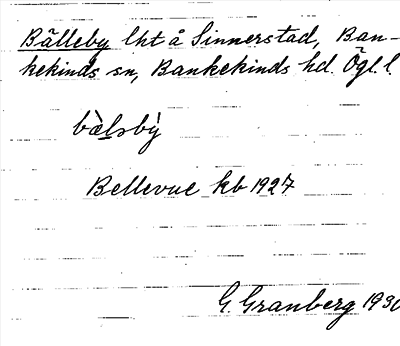 Bälleby lht å Sinnerstad, Ban-
kekinds sn, Bankekinds hd. Ögl. l.
bæ̀lsbỳ
Bellevue kb 1927
G. Granberg 1930